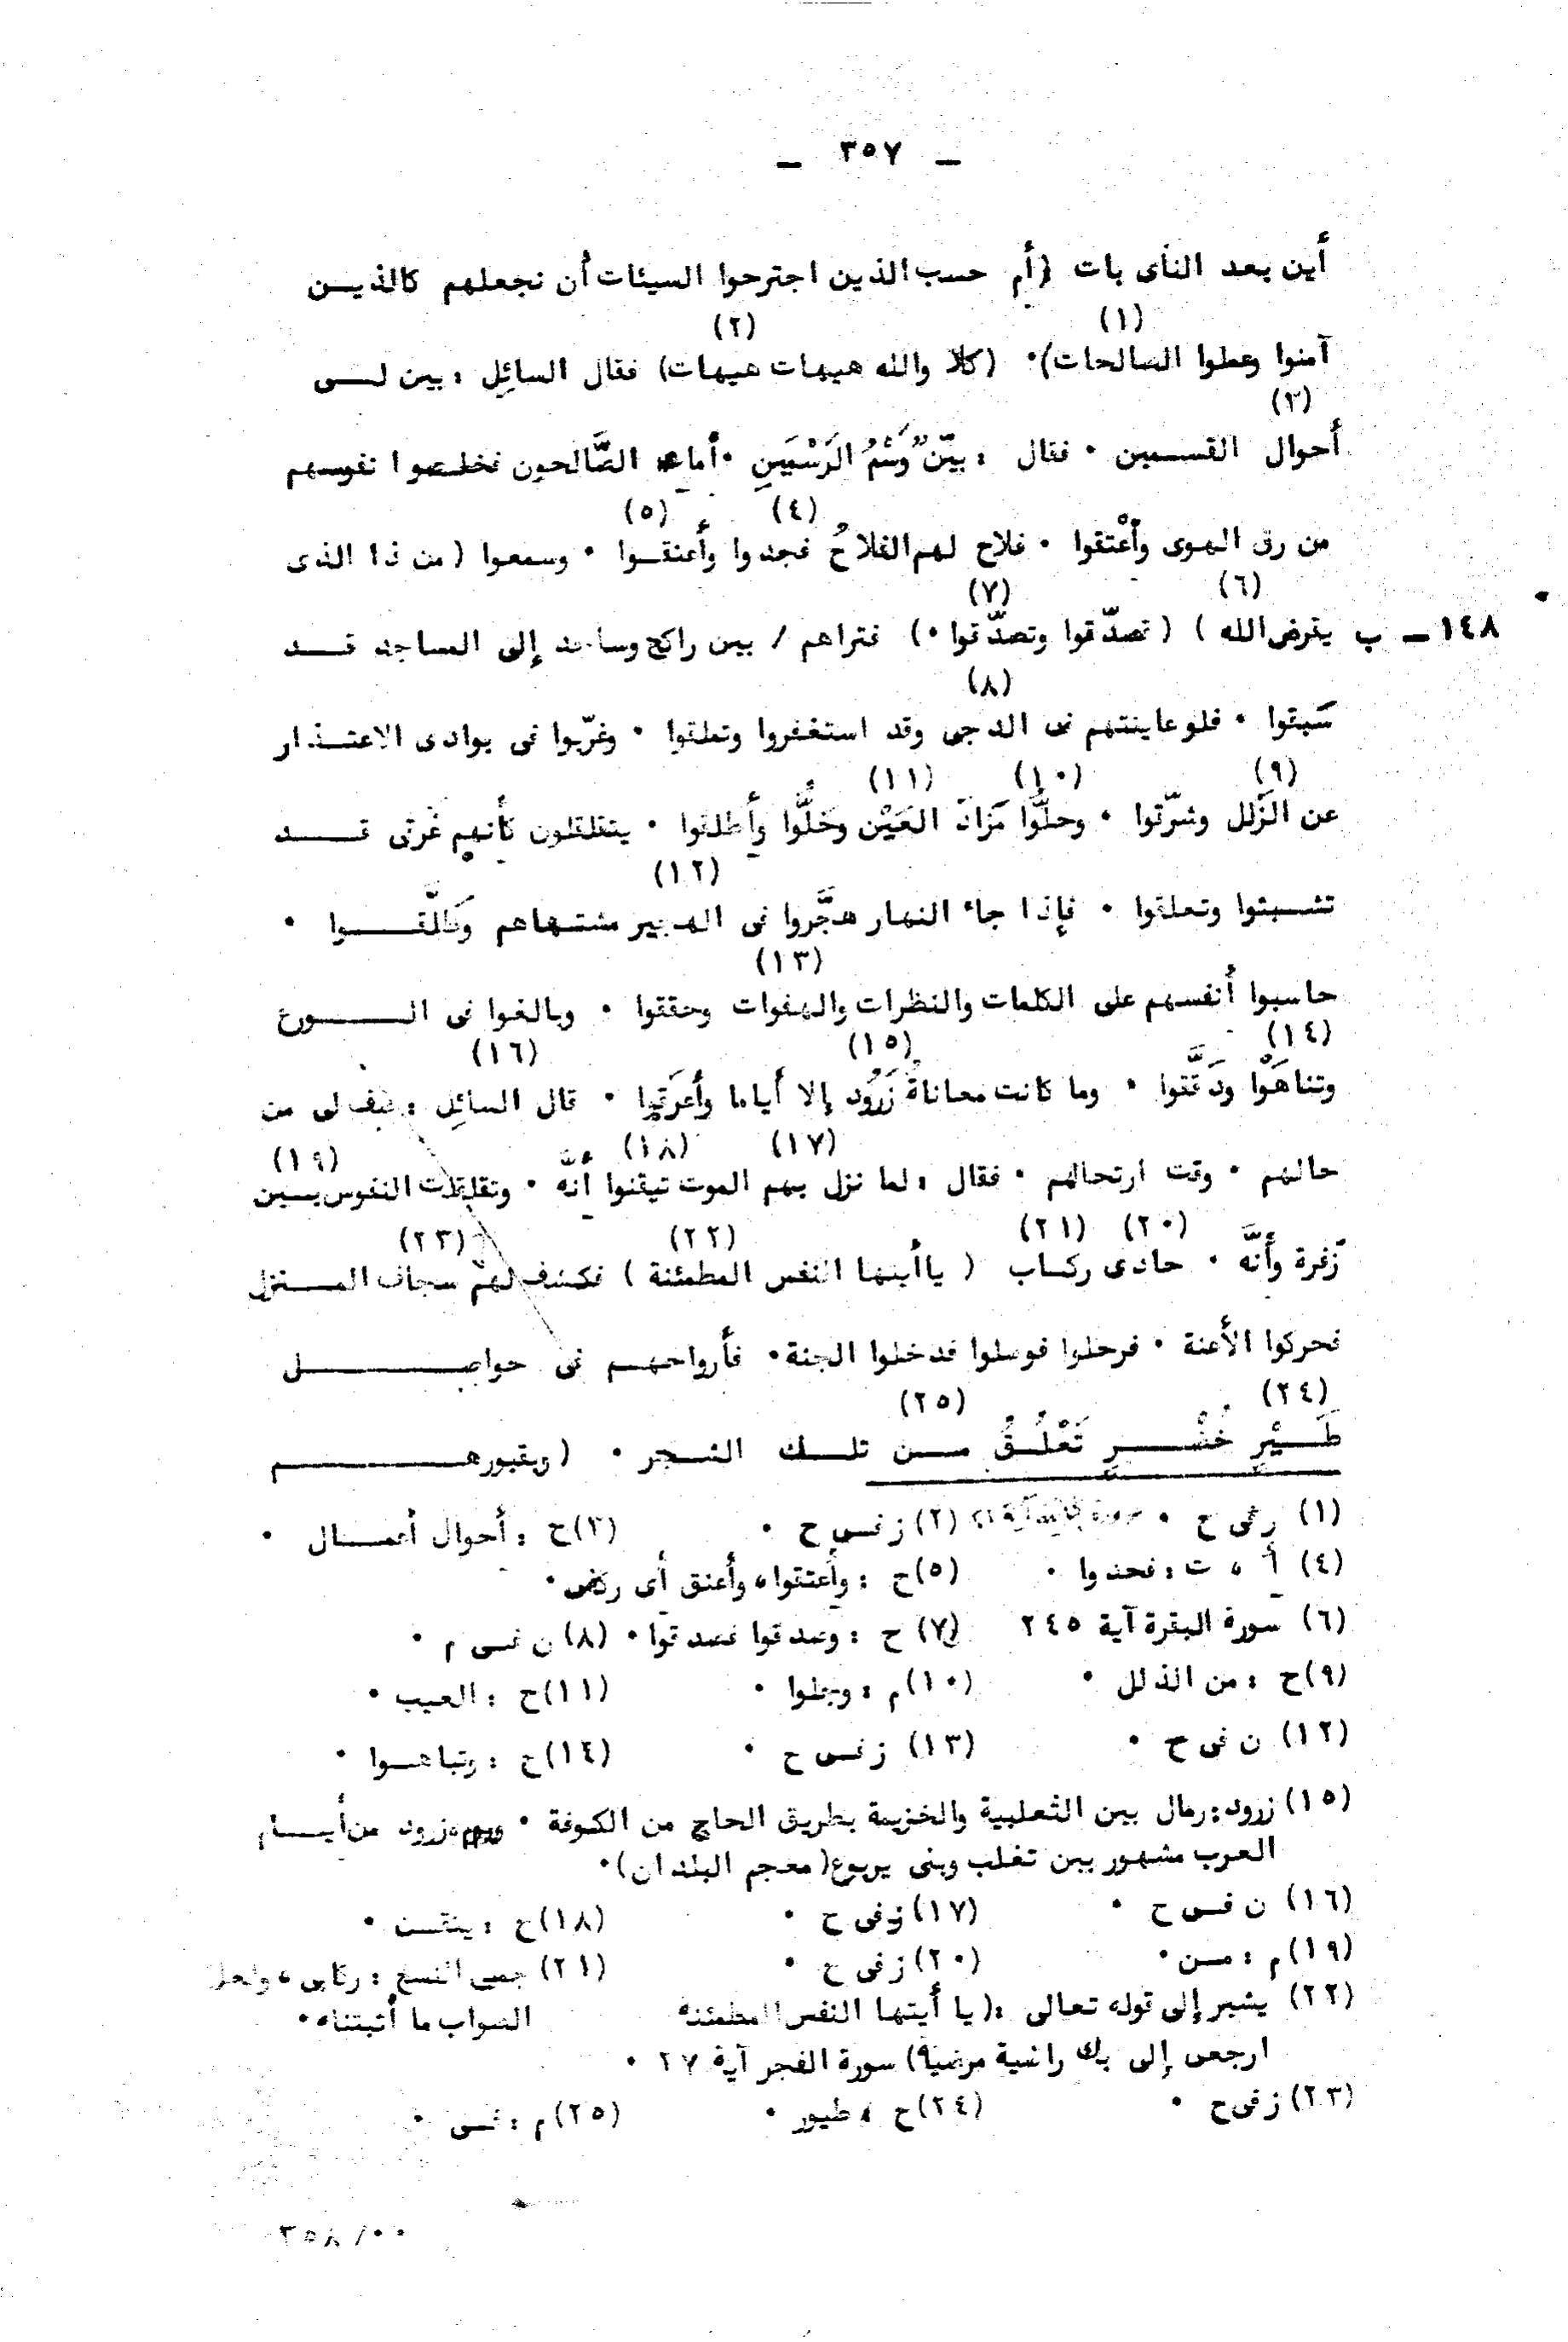 ـ ٣٥٧ ـ
أين بعد النأى بات (أم حسب الذين اجترحوا السيئات أن نجعلهم كالذيـن
(١) (٢)
آمنوا وعملوا الصالحات)٠ (كلا والله هيهات هيهات) فقال السائل : بين لـى
(٣)
أحوال القسـمين ٠ فقال : بيّن وَسْمُ الرَسْمَينِ ٠أما الصَّالحون فخلـصوا نفوسهم
(٤) (٥)
من رق الهوى وأُعْتقوا ٠ فلاح لهم الفلاحُ فجدوا وأعنقـوا ٠ وسمعوا (من ذا الذى
(٦) (٧)
١٤٨ ـ ب يقرض الله ) (تصدّقوا وتصدّقوا ٠) فتراهم / بين راكع وساجد إلى المساجد قــد
(٨)
سَبقوا ٠ فلو عاينتهم فى الدجى وقد استغفروا وتملقوا ٠ وغرّبوا فى بوادى الاعتـذار
(٩) (١٠) (١١)
عن الزَلل وشرّقوا ٠ وحلُّوا مَزادَ العَيْن وخَلُّوا وأطلقوا ٠ يتقلقلون كأنهم غرقى قــد
(١٢)
تشـبثوا وتعلقوا ٠ فإذا جاء النهار هجَّروا فى الهجير مشتهاهم وطَلَّقــوا ٠
(١٣)
حاسبوا أنفسهم على الكلمات والنظرات والهفوات وحققوا ٠ وبالغوا فى الــورع
(١٤) (١٥) (١٦)
وتناهَوْا ودَقَّقوا ٠ وما كانت معاناةُ زَرُود إلا أياما وأعرَقوا ٠ قال السائل : صف لى من
(١٧) (١٨) (١٩)
حالهم ٠ وقت ارتحالهم ٠ فقال : لما نزل بهم الموت تيقنوا أنَّه ٠ وتقلقلت النفوس بـين
(٢٠) (٢١) (٢٢) (٢٣)
زفرة وأنَّه ٠ حادى ركـاب ( ياأيتها النفس المطمئنة ) فكشف لهم سجاف المــنزل
فحركوا الأعنة ٠ فرحلوا فوصلوا فدخلوا الجنة٠ فأرواحهـم فى حواصـــل
(٢٤) (٢٥)
طَـيْرٍ خُضْــرٍ تَعْلُـقُ مــن تلــك الشـجر ٠ (وبقبورهــــم
(١) زفى ح ٠ سورة الجاثية آية ٢١ (٢) ز فـى ح ٠ (٣)ح : أحوال أعمــال ٠
(٤) أ ، ت : فحدوا ٠ (٥)ح : وأعتقوا، وأعنق أى ركض٠
(٦) سورة البقرة آية ٢٤٥ (٧) ح : وصدقوا فصدقوا٠ (٨) ن فـى م ٠
(٩)ح : من الذلل ٠ (١٠)م : وجلوا ٠ (١١)ح : العيب ٠
(١٢) ن فى ح ٠ (١٣) ز فـى ح ٠ (١٤)ح : وتباهـوا ٠
(١٥) زرود: رمال بين الثعلبية والخزيمة بطريق الحاج من الكوفة ٠ ويوم زرود من أيــام
العرب مشهور بين تغلب وبنى يربوع (معجم البلدان)٠
(١٦) ن فـى ح ٠ (١٧)زفى ح ٠ (١٨)ح : ينقـن ٠
(١٩)م : مـن٠ (٢٠)زفى ح ٠ (٢١) جميع النسخ : ركابى ، ولعل
(٢٢) يشير إلى قوله تعالى :(يا أيتها النفس المطمئنة الصواب ما أثبتناه ٠
ارجعى إلى ربك راضية مرضية) سورة الفجر آية ٢٧ ٠
(٢٣)زفى ح ٠ (٢٤)ح ، طيور ٠ (٢٥)م : فـى ٠
٠٠/ ٣٥٨